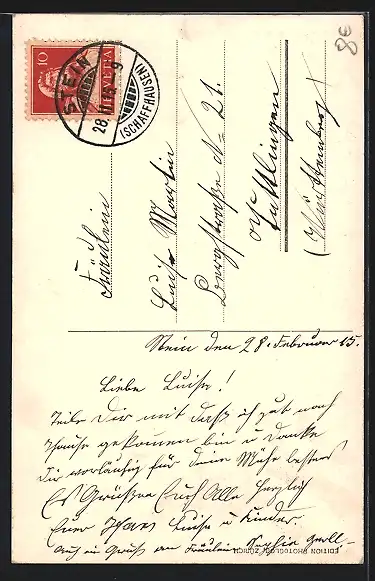 8€
10
HELVETIA
STEIN
28.II.15-9
(SCHAFFHAUSEN)
Fräulein
Luise Martin
Bergstraße No 21.
Tuttlingen
(Württemberg)
Stein den 28. Februar 15.
Liebe Luise!
Teile Dir mit daß ich gut nach
Hause gekommen bin u danke
Dir vorläufig für deine Mühe bestens
Es Grüßen Euch Alle herzlich
Euer Hans Luise u Kinder.
Auch ein Gruß an Fräulein Sophie
EDITION PHOTOGLOB ZÜRICH